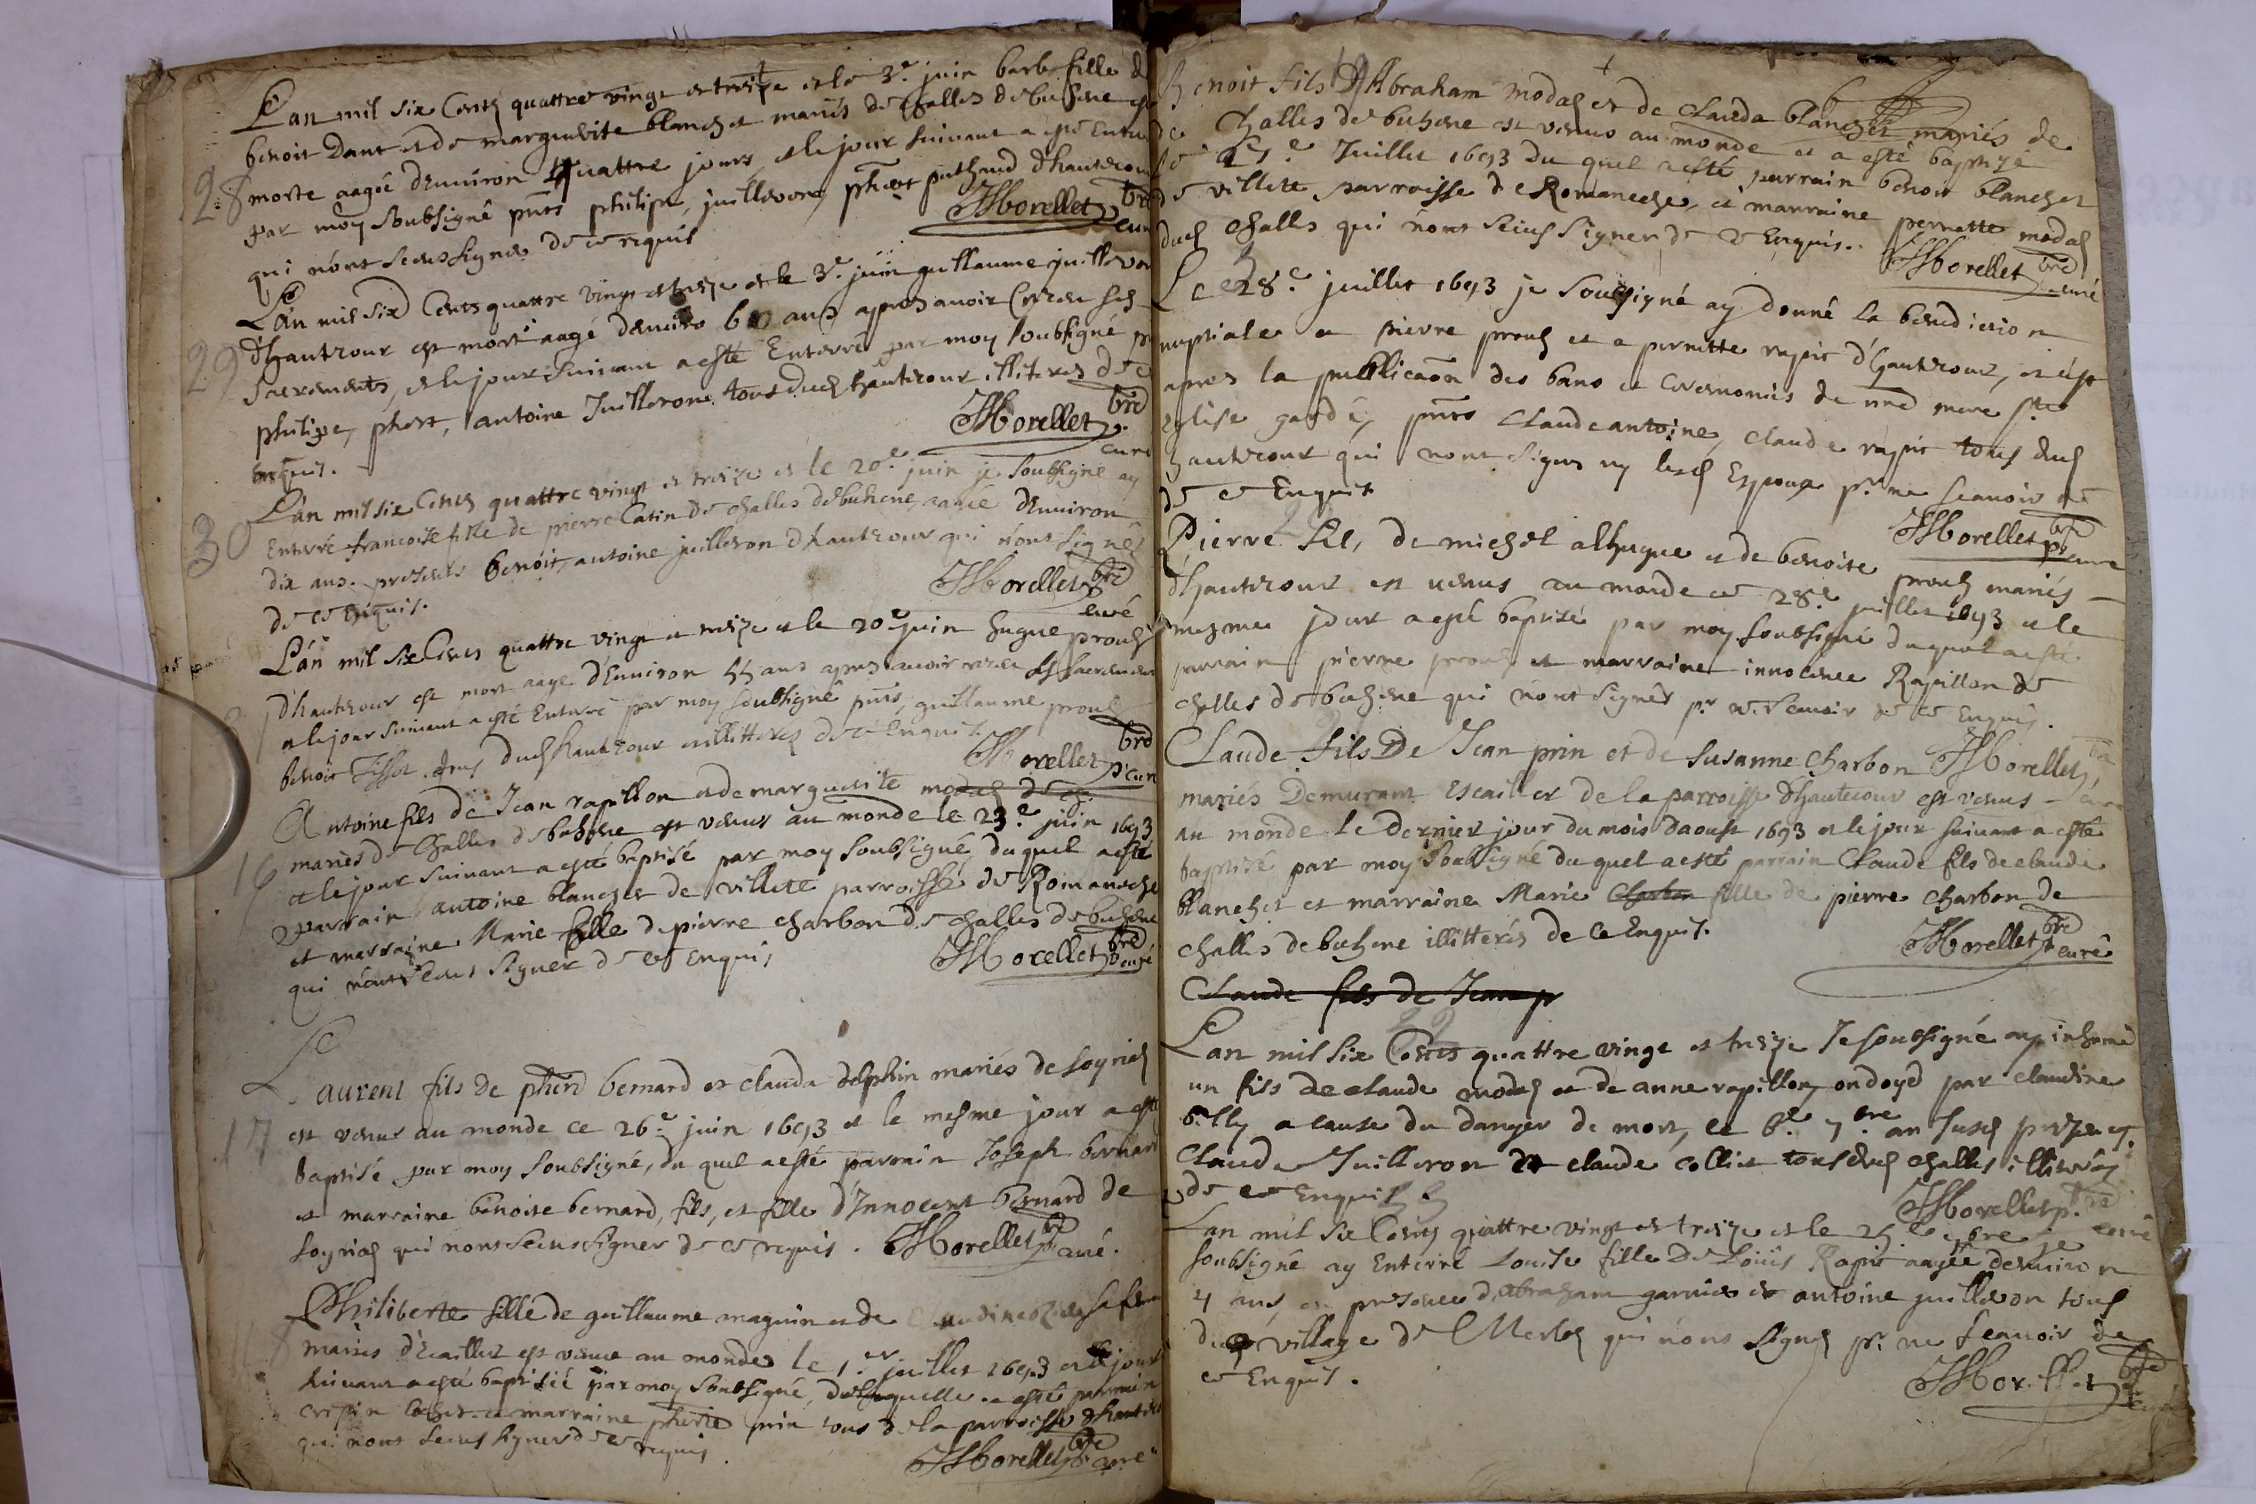 Lan mil six Cents quattre vingt et treize et le 3.e juin barbe fille de
benoit Dant et de marguerite blanchet mariés de Challes de buhene est
28 morte aagée d'enuiron quattre jours, et le jour suiuant a esté Enterrée
par moy soubsigné pnts philipe, juilleron, phert puthaud d'hautecour
qui n'ont sceus signer de ce requis
JMorellet pbre curé
L'an mil six Cents quattre vingt et treize et le 3.e juin guillaume juilleron
29 d'hautecour est mort aagé denuiron 60 ans apres auoir receu ses
sacrements, et le jour suiuant a esté Enterré par moy soubsigné pnts
philipe, phert, antoine Juilleron tous dud hautecour illiteres de ce
Enquis.
JMorellet pbre curé
L'an mil six Cents quattre vingt et treize et le 20.e juin je soubsigné ay
30 Enterré francoise fille de pierre Catin de challes de buhene, aagée d'Enuiron
dix ans. presents benoit, antoine juilleron d'hautecour qui n'ont signés
de ce Enquis.
JMorellet pbre curé
L'an mil six Cents quattre vingt et treize et le 20.e juin hugue prouch
d'hautecour est mort aagé d'Enuiron 55 ans apres auoir receu ses sacrements
et le jour suiuant a esté Enterré par moy soubsigné pnts, guillaume prouch
benoit Tissot tous dud hautecour illitteres de ce Enquis.
JMorellet pbre Curé
Antoine fils de Jean rapillon et de marguerite modas
16 mariés de Challes de buhene est venus au monde le 23.e juin 1693
et le jour suiuant a esté baptisé par moy soubsigné, duquel a esté
parrain antoine blanchet de villete parroisse de Romaneche
et marraine Marie fille de pierre charbon de challes de buhene
qui n'ont sceus signer de ce Enquis
JMorellet pbre curé
17 Laurent fils de phert bernard et clauda delphin mariés de soyriad
est venus au monde ce 26.e juin 1693 et le mesme jour a esté
baptisé par moy soubsigné, du quel a esté parrain Joseph bernard
et marraine benoite bernard, fils, et fille d'Innocent bernard de
soyriad qui n'ont sceus signer de ce requis. JMorellet pbre curé.
Philiberte fille de guillaume maguin et de sa feme
mariés d'Ecaillet est venue au monde le 1.er juillet 1693 et le jour
suiuant a esté baptisée par moy soubsigné, de laquelle a esté parrain
crespin et marraine pherte prin tous de la parroisse d'hautecour
qui n'ont sceus signer de ce requis
JMorellet pbre curé
Benoit fils D'Abraham modas et de clauda blanchet mariés de
Challes de buhene est venus au monde et a esté baptizé
le Juillet 1693 du quel a esté parrain benoit blanchet
de villete parroisse de Romaneche, et marraine pernette modas
dud challes qui n'ont sceus signer de ce Enquis.
JMorellet pbre curé
Le 28.e juillet 1693 je soubsigné ay donné la benediction
nuptiale a pierre prouch et a pernette rapit d'hautecour, et est
apres la publicaõn des bans et ceremonies de nre mere ste
Eglise gardé, pnts Claude antoine, claude rapit tous dud
hautecour qui n'ont signes ny lesd Espoux pr. ne scauoir de
de ce Enquis
JMorellet pbre curé
Pierre fils, de michel alhugue et de benoite prouch mariés
d'hautecour est venus au monde ce 28.e juillet 1693 et le
mesme jour a esté baptisé par moy soubsigné duquel a esté
parrain pierre prouch et marraine innocence Rapillon de
challes de buhene qui n'ont signés pr. ne scauoir de ce Enquis.
Claude fils De Jean prin et de Susanne Charbon JMorellet pbre
mariés Demurant Escaillet de la parroisse d'hautecour est venus curé
au monde le dernier jour du mois daoust 1693 et le jour suiuant a esté
baptisé par moy soubsigné du quel a esté parrain Claude fils de claude
blanchet et marraine Marie Charbon fille de pierre charbon de
challes de buhene illitterés de Ce Enquis.
JMorellet pbre curé
Claude fils de Jean p
Lan mil six Cents quattre vingt et treize Je soubsigné ay inhumé
un fils de claude modas et de anne rapillon, ondoyé par claudine
billy a cause du danger de mort, le 6.e 7bre an susd presents.
Claude Juilleron et claude collict tous dud challes illiterés
de ce Enquis
JMorellet pbre curé
Lan mil six Cents quattre vingt et treize et le 25.e 9bre je
soubsigné ay Enterré Louise fille De Loüis Rapit aagée denuiron
4 ans, en presence d'abraham garnier et antoine juilleron tous
du village de Merlod qui n'ont signés pr. ne scauoir de
ce Enquis.
JMorellet pbre curé